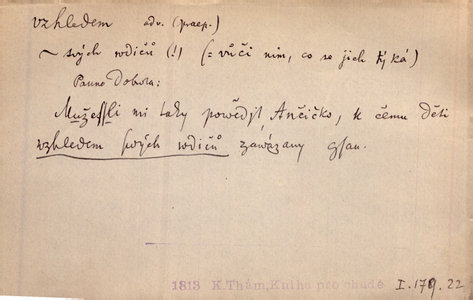 vzhledem adv. (praep.)
~ svých rodičů (!) (= vůči nim, co se jich týká)
Panna Dobora:
Mužeſſli mi taky powědjť, Ančičko, k čemu děti
wzhledem swých rodičů zawázany gsau.
1813 K.Thám, Kniha pro chudé I. 179. 22